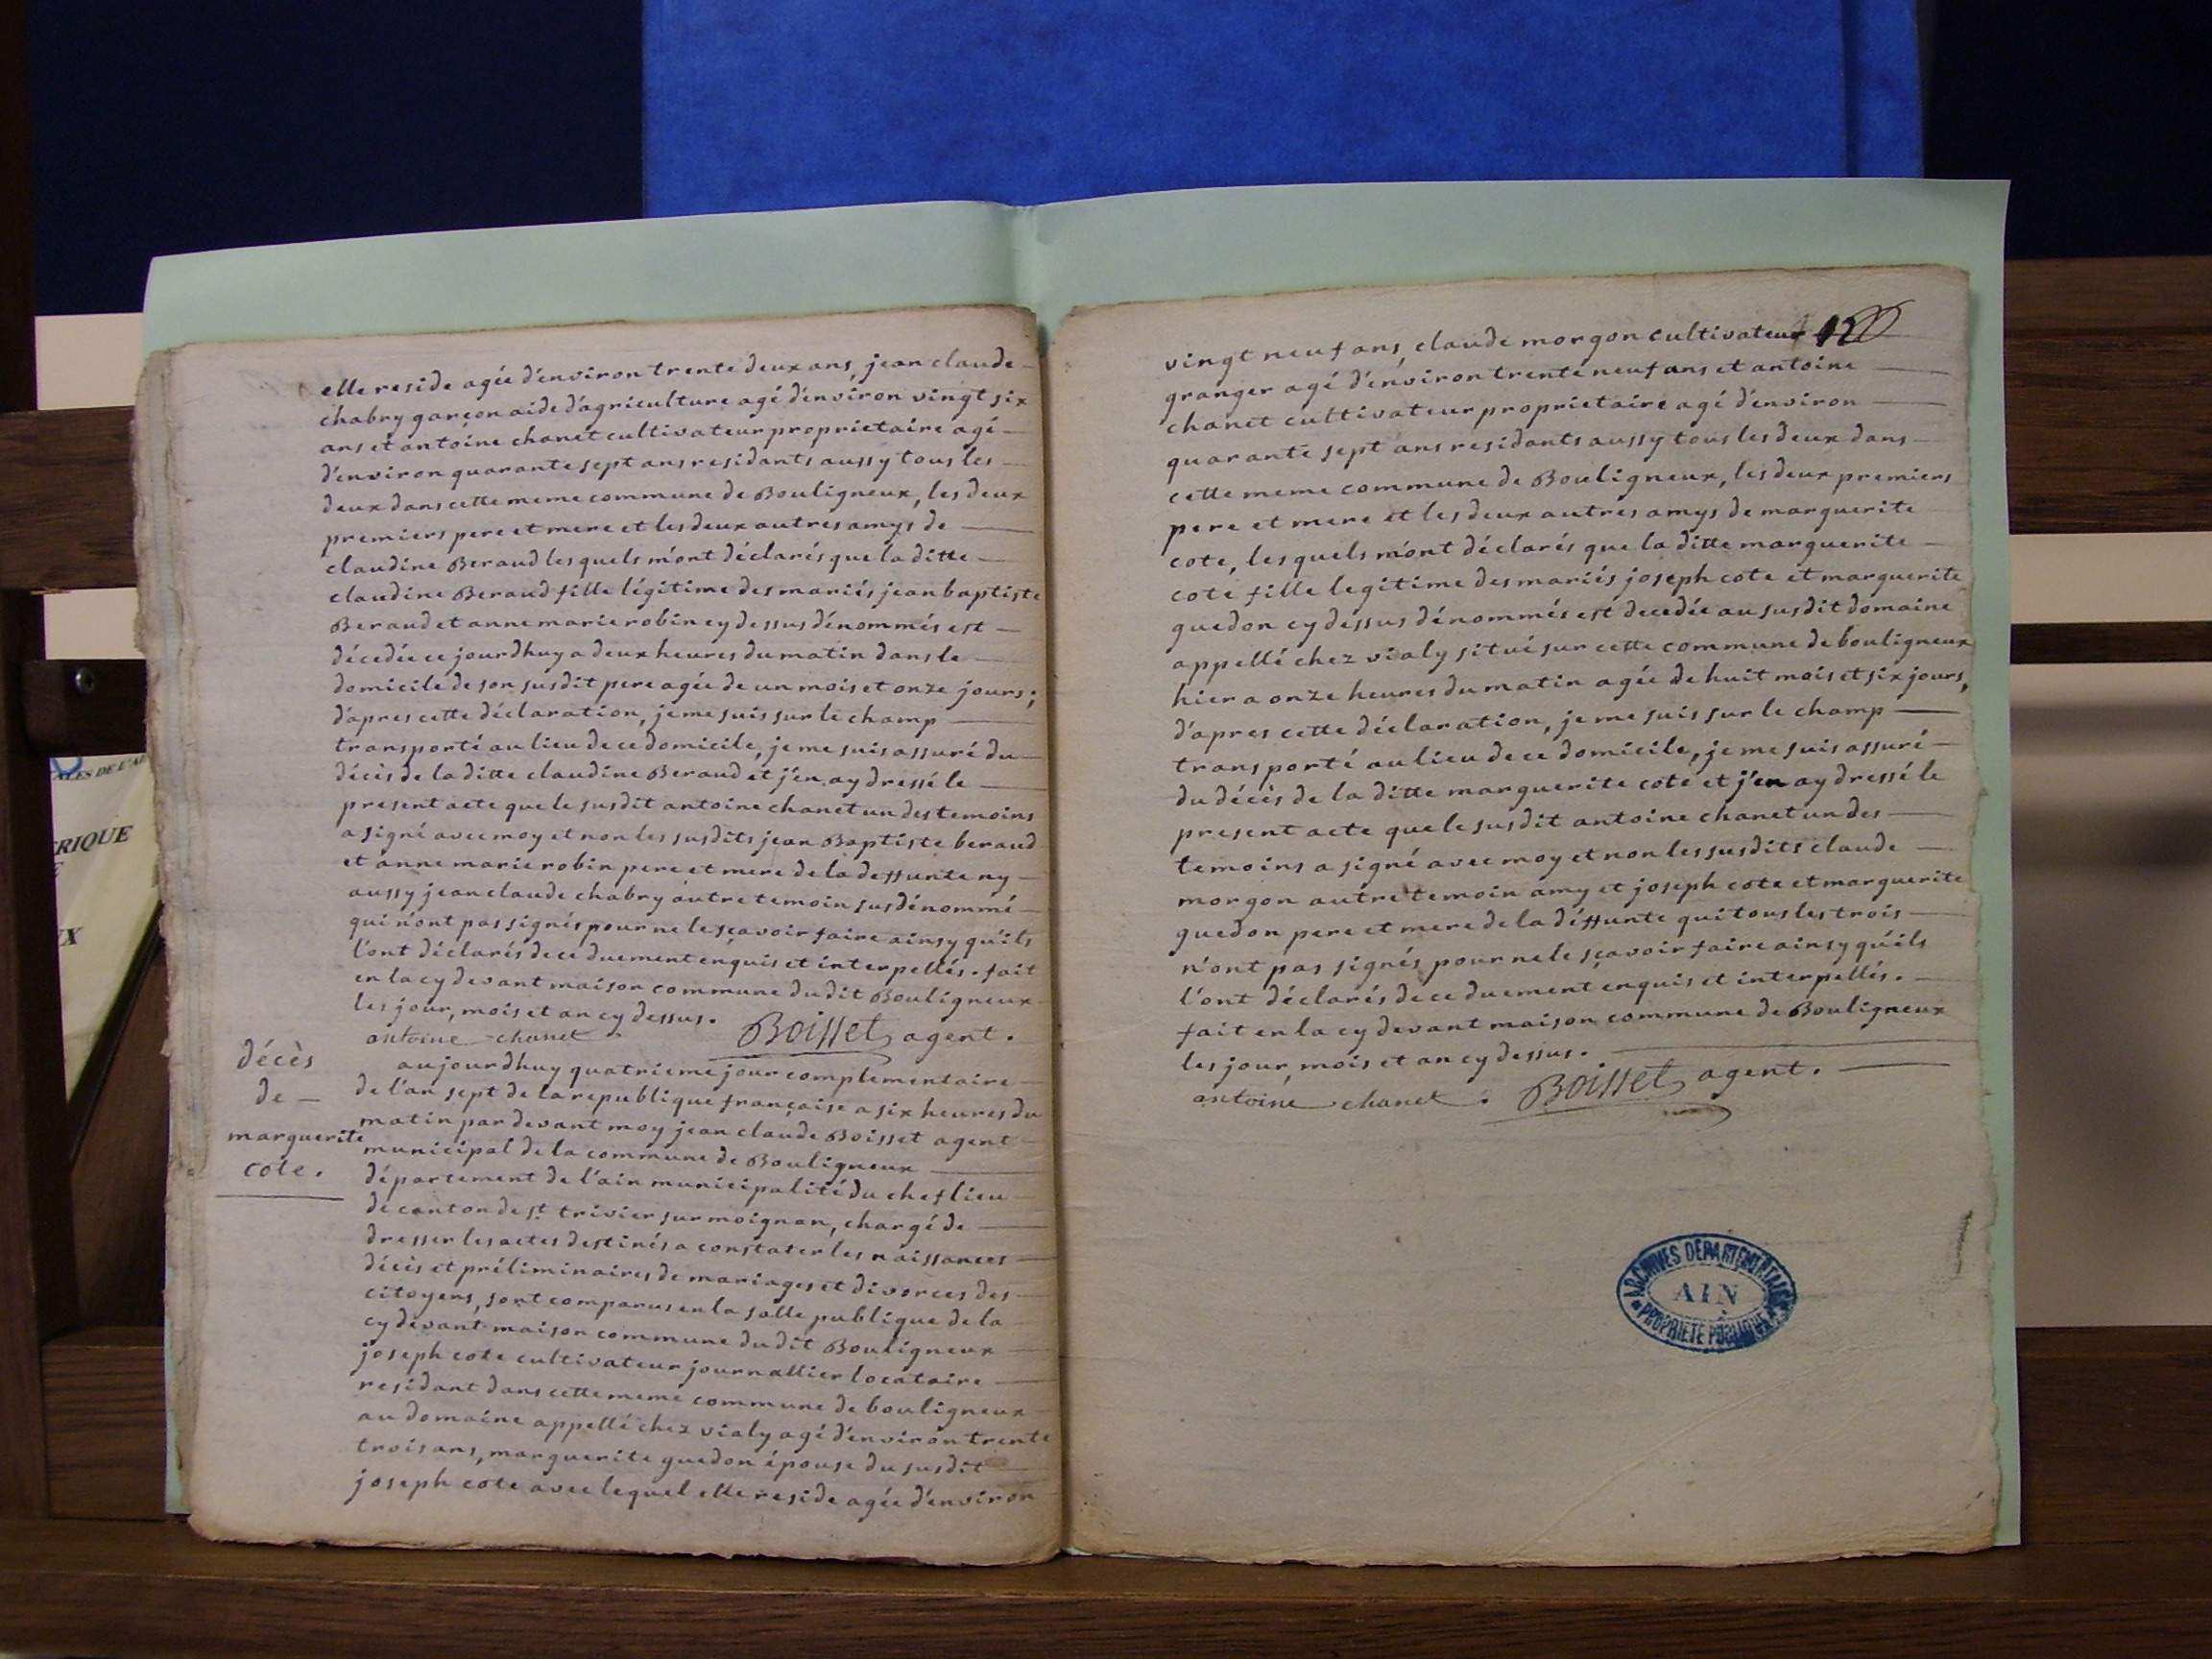 elle reside agée d'environ trente deux ans, jean claude
chabry garçon aide d'agriculture agé d'environ vingt six
ans et antoine chanet cultivateur proprietaire agé
d'environ quarante sept ans residants aussy tous les
deux dans cette meme commune de Bouligneux, les deux
premiers pere et mere et les deux autres amys de
claudine Beraud les quels m'ont déclarés que la ditte
claudine Beraud fille légitime des mariés jean baptiste
Beraud et anne marie robin cy dessus dénommés est
décedée ce jourdhuy a deux heures du matin dans le
domicile de son susdit pere agée de un mois et onze jours;
d'apres cette déclaration, je me suis sur le champ
transporté au lieu de ce domicile, je me suis assuré du
décès de la ditte claudine Beraud et j'en ay dressé le
present acte que le susdit antoine chanet un des temoins
a signé avec moy et non les susdits jean Baptiste beraud
et anne marie robin pere et mere de la deffunte ny
aussy jean claude chabry autre temoin susdénommé
qui n'ont pas signés pour ne le sçavoir faire ainsy qu'ils
l'ont déclarés de ce duement enquis et interpellés. fait
en la cy devant maison commune dudit Bouligneux
les jour, mois et an cy dessus.
antoine chanet Boisset agent.
décès
de
marguerite
cote.
aujourdhuy quatrieme jour complementaire
de l'an sept de la republique française a six heures du
matin par devant moy jean claude Boisset agent
municipal de la commune de Bouligneux
département de l'ain municipalité du chef lieu
de canton de st. trivier sur moignan, chargé de
dresser les actes destinés a constater les naissances
décès et préliminaires de mariages et divorces des
citoyens, sont comparus en la salle publique de la
cy devant maison commune dudit Bouligneux
joseph cote cultivateur journallier locataire
residant dans cette meme commune de bouligneux
au domaine appellé chez vialy agé d'environ trente
trois ans, marguerite guedon épouse du susdit
joseph cote avec lequel elle reside agée d'environ
12
vingt neuf ans, claude morgon cultivateur
granger agé d'environ trente neuf ans et antoine
chanet cultivateur proprietaire agé d'environ
quarante sept ans residants aussy tous les deux dans
cette meme commune de Bouligneux, les deux premiers
pere et mere et les deux autres amys de marguerite
cote, les quels m'ont déclarés que la ditte marguerite
cote fille legitime des mariés joseph cote et marguerite
guedon cy dessus dénommés est decedée au susdit domaine
appellé chez vialy situé sur cette commune de bouligneux
hier a onze heures du matin agée de huit mois et six jours,
d'apres cette déclaration, je me suis sur le champ
transporté au lieu de ce domicile, je me suis assuré
du décès de la ditte marguerite cote et j'en ay dressé le
present acte que le susdit antoine chanet un des
temoins a signé avec moy et non les susdits claude
morgon autre temoin amy et joseph cote et marguerite
guedon pere et mere de la déffunte qui tous les trois
n'ont pas signés pour ne le sçavoir faire ainsy qu'ils
l'ont déclarés de ce duement enquis et interpellés.
fait en la cy devant maison commune de Bouligneux
les jour, mois et an cy dessus.
antoine chanet. Boisset agent.
ARCHIVES DÉPARTEMENTALES
AIN
PROPRIÉTÉ PUBLIQUE
RIQUE